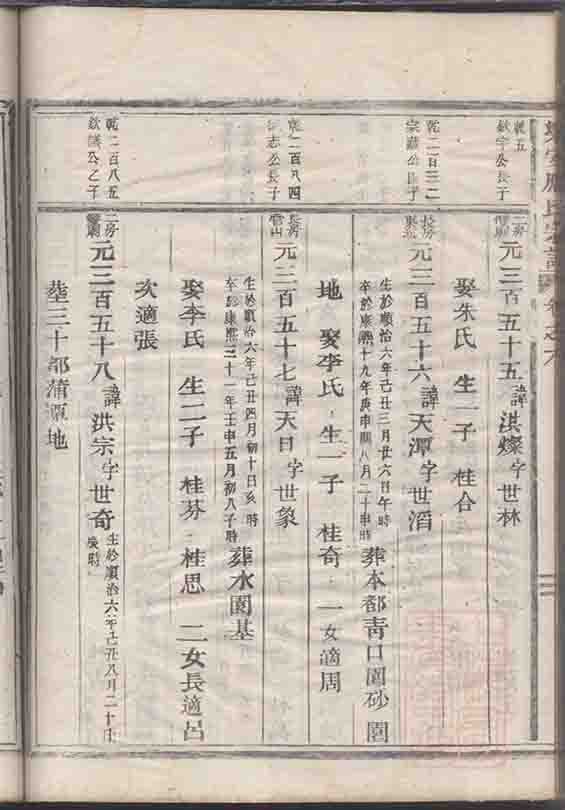 氏宗譜 卷之六
乾五
欽宇公長子
二房
元三百五十五諱洪燦字世林
娶朱氏 生一子 桂合
乾二百三二
長房
元三百五十六諱天潭字世滔
生於順治六年己丑三月廿六日午時
卒於康熙十九年庚申閏八月二十申時
葬本都青口園砂園
地 娶李氏 生一子 桂奇 一女適周
二百八四
志公長子
長房
元三百五十七諱天日字世象
生於順治六年己丑四月初十日亥時
卒於康熙三十一年壬申五月初八子時
葬水園基
娶李氏 生二子 桂芬 桂思 二女長適呂
次適張
乾二百八五
欽 公之子
二房
元三百五十八諱洪宗字世奇
生於順治六年己丑八月二十
時
葬三十都蒲潭地